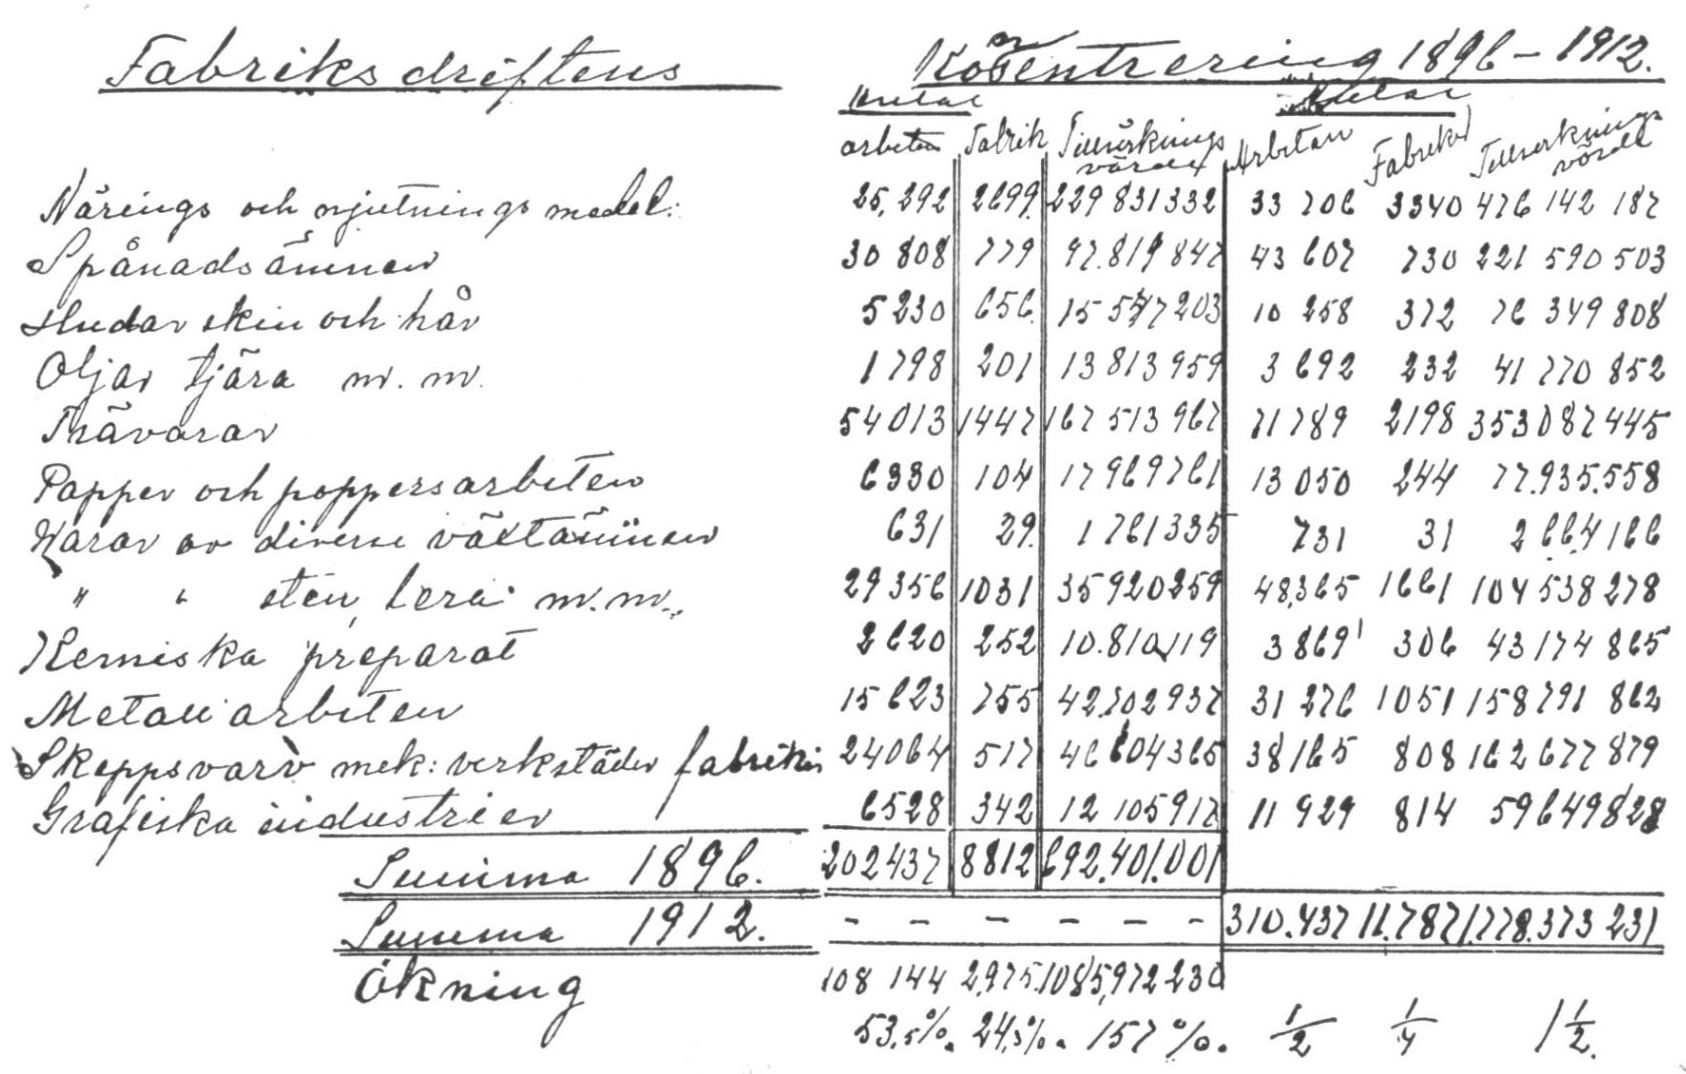 Fabriksdriftens Konsentrering 1896 – 1912.
Antal Antal
arbetare Fabrik Tillverknings värde Arbetare Fabriker Tillverknings värde
Närings och njutnings medel: 25,292 2699 229 831332 33 706 3340 476 142 187
Spånadsämnen 30 808 779 97.819 847 43 607 730 221 590 503
Hudar skin och hår 5 230 656 15 547 203 10 258 372 76 349 808
Oljor tjära m. m. 1 798 201 13 813 959 3 692 232 41 770 852
Trävaror 54 013 1447 167 513 967 71 789 2198 353 087 445
Papper och poppersarbeten 6330 104 17 969 761 13 050 244 77.935.558
Varor av diverse växtämnen 631 29. 1 761 335 731 31 2 664 166
" " sten, lera m.m. 29 356 1031 35 920 259 48,365 1661 104 538 278
Kemiska preparat 2620 252 10.810,119 3 869 306 43 174 865
Metall arbeten 15 623 755 42.702 937 31 276 1051 158 791 862
Skeppsvarv mek: verkstäder fabriker 24 064 517 46 604 365 38 165 808 162 677 879
Grafiska industrier 6528 342 12 105 917 11 929 814 59 649 828
Summa 1896. 202 437 8812 692.401.001
Summa 1912. – – – – – – 310.437 11.787 1.778.373 231
Ökning 108 144 2,975. 1085,972 230
53,5%. 24,3%. 157 %. 1/2 1/4 1 1/2.